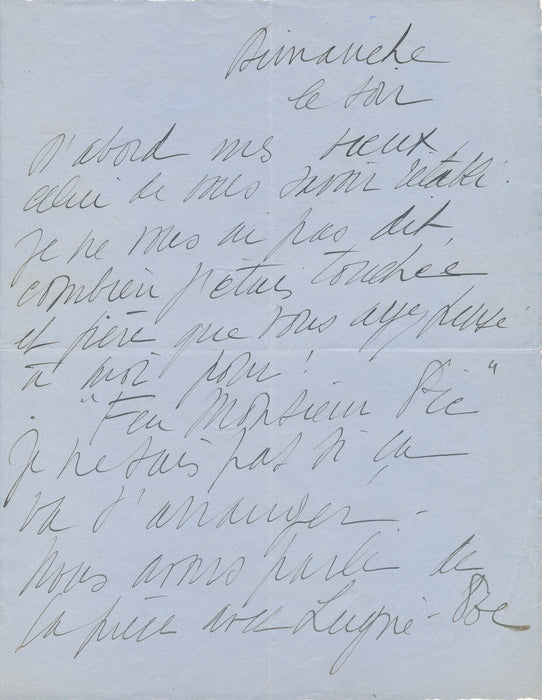 Dimanche
le soir
D'abord mes vœux,
celui de vous savoir rétabli.
Je ne vous ai pas dit,
combien j'étais touchée
et fière que vous ayez pensé
à moi pour !
"Feu Monsieur Pic"
je ne sais pas si ça
va s'arranger -
Nous avons parlé de
la pièce avec Lugné-Poe